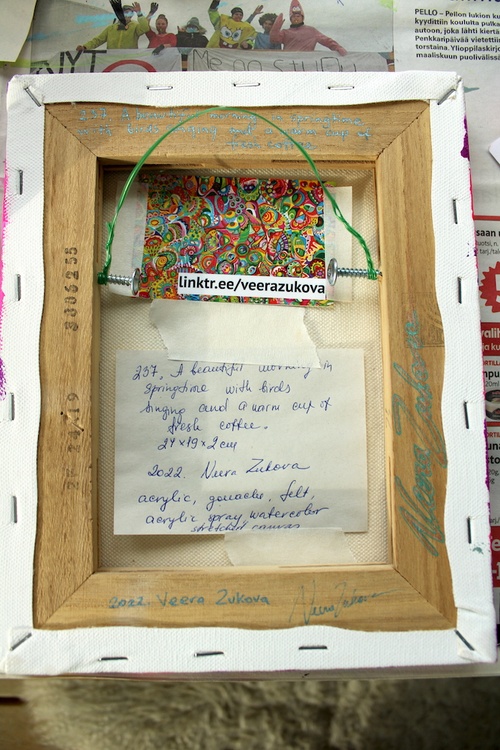 PELLO – Pellon lukion
kyydittiin kouluita pulka
autoon, joka lähti kiertä
Penkkaripäivää vietettiin
torstaina. Ylioppilaskirj
maaliskuun puolivälissä
237. A beautiful morning in springtime
with birds singing and a warm cup of
fresh coffee
linktr.ee/veerazukova
237. A beautiful morning in
springtime with birds
singing and a warm cup of
fresh coffee.
24×19×2cm
2022. Veera Zukova
acrylic, gouache, felt,
acrylic spray, watercolor
stretched canvas
3306255
24/19
Veera Zukova
2022. Veera Zukova
Veera Zukova